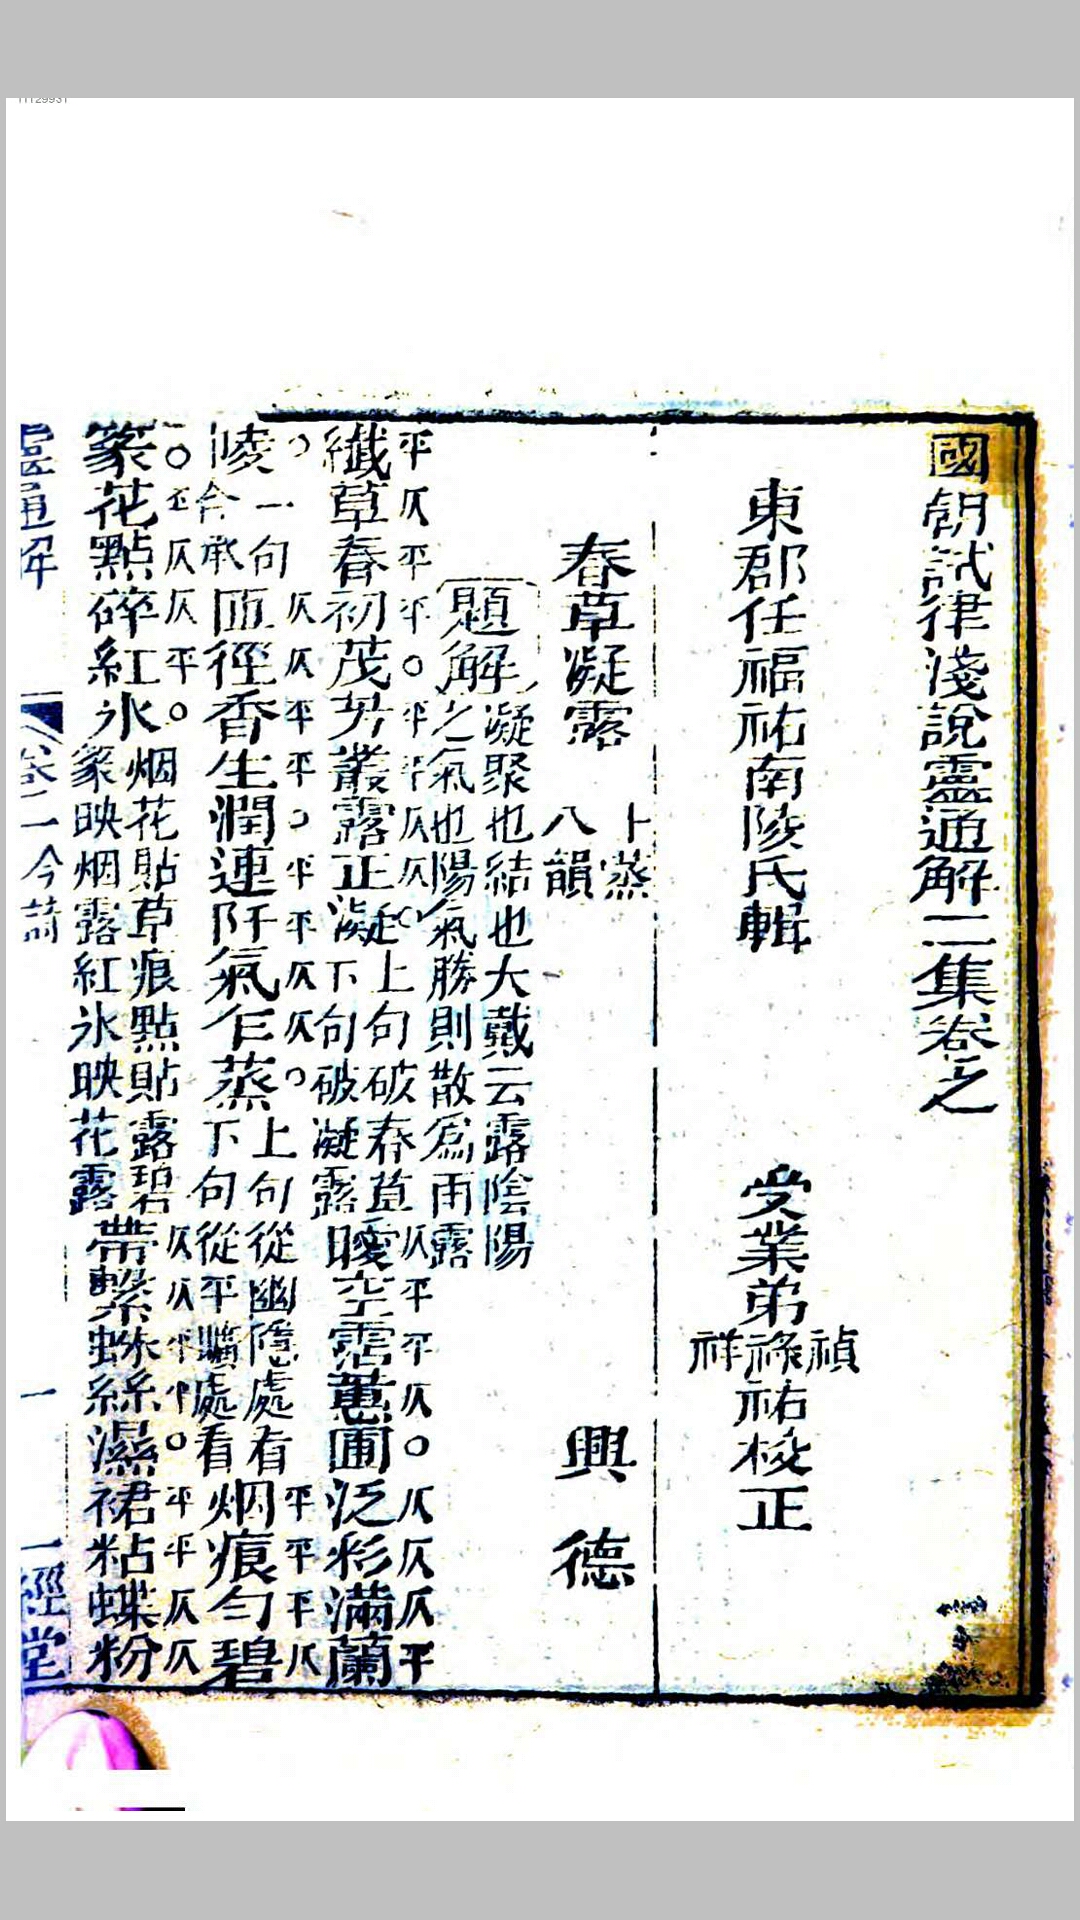 國朝試律淺說靈通解二集卷之
東郡任福祐南陵氏輯 受業弟禎祿祥祐校正
春草凝露 十蒸 八韻 興德
題解 凝聚也結也大戴云露陰陽
之氣也陽氣勝則散為雨露
平仄平平○平平仄仄○仄平平仄○仄仄仄平
纖草春初茂芳叢露正凝 上句破春草
下句破凝露 曖空霑蕙圃泛彩滿蘭
○仄仄平平○平平仄仄○平平平仄
陵 一句
合承 匝徑香生潤連阡氣乍蒸 上句從幽隱處看
下句從平曠處看 烟痕勻碧
○平仄仄平○仄仄平平○平平仄仄
篆花點碎紅氷 烟花貼草痕點貼露碧
篆映烟露紅氷映花露 帶縈蛛絲濕裙粘蝶粉
靈通解 卷二 今詩 一 一經堂